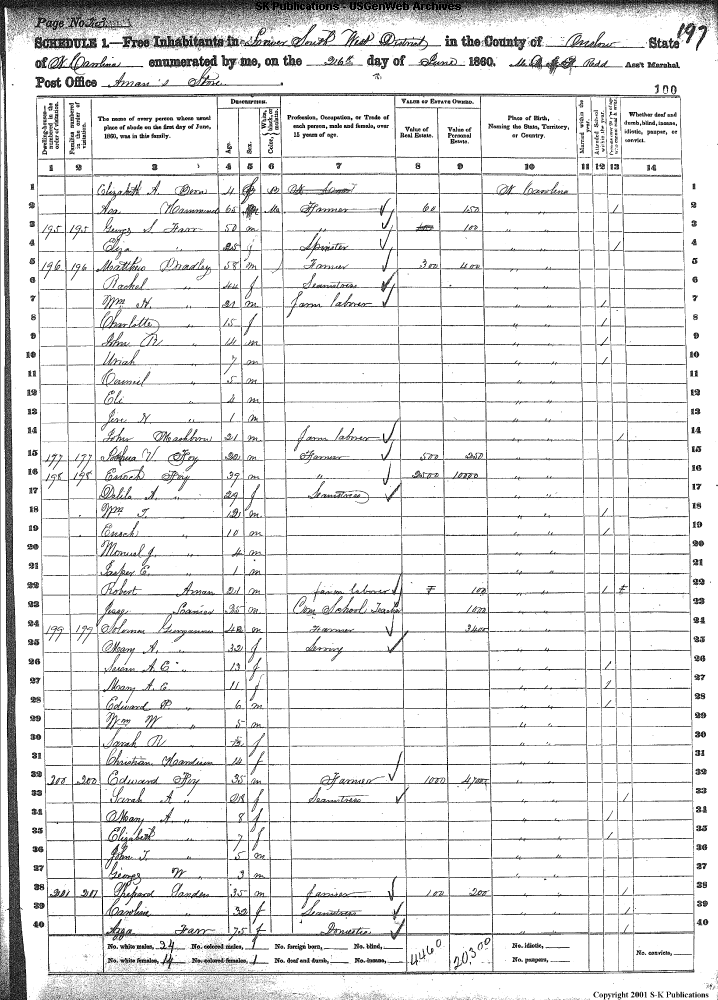 SK Publications - USGenWeb Archives
Page No.
197
SCHEDULE 1.—Free Inhabitants in Lower South West District in the County of Onslow State
of N Carolina enumerated by me, on the 26th day of June 1860. Ass't Marshal
Post Office Aman's Store
100
DESCRIPTION. VALUE OF ESTATE OWNED.
Dwelling-houses—numbered in the order of visitation.
Families numbered in the order of visitation.
The name of every person whose usual place of abode on the first day of June, 1860, was in this family.
Age.
Sex.
Color. White, black, or mulatto.
Profession, Occupation, or Trade of each person, male and female, over 15 years of age.
Value of Real Estate.
Value of Personal Estate.
Place of Birth, Naming the State, Territory, or Country.
Married within the year.
Attended School within the year.
Whether deaf and dumb, blind, insane, idiotic, pauper, or convict.
1 2 3 4 5 6 7 8 9 10 11 12 13 14
1 Elizabeth A. 4 f N Carolina 1
2 Hammond 65 Farmer 60 150 " " / 2
3 195 195 George S Farr 50 m " 100 " " 3
4 Eliza " 25 f Spinster " " / 4
5 196 196 Matthew Bradley 58 m Farmer 300 400 " " 5
6 Rachel " 44 f Seamstress " " 6
7 Wm H. " 21 m farm laborer " " / 7
8 Charlotte " 15 f " " / 8
9 John R " 14 m " " / 9
10 Uriah " 7 m " " / 10
11 " 5 m " " 11
12 Eli " 4 m " " 12
13 H " 1 m " " 13
14 John Mashborn 21 m farm laborer " " / 14
15 197 197 Joshua Hoy 20 m Farmer 500 250 " " 15
16 198 198 Enoch Hoy 39 m " 2500 10000 " " 16
17 A. " 29 f Seamstress " " 17
18 Wm T. " 12 m " " / 18
19 Enoch " 10 m " " / 19
20 J. " 4 m " " 20
21 Jasper E. " 1 m " " 21
22 Robert Aman 21 m farm laborer 100 " " / 22
23 Jesse 35 m Com School Teacher 1000 " " 23
24 199 199 Solomon 42 m Farmer 3400 " " 24
25 Mary A. " 32 f " " 25
26 Susan A. E " 13 f " " / 26
27 Mary A. E. " 11 f " " / 27
28 Edward " 6 m " " / 28
29 Wm W " 5 m " " 29
30 Sarah R " f " " 30
31 Christian 14 f " " 31
32 200 200 Edward Hoy 35 m Farmer 1000 " " 32
33 Sarah A " 28 f Seamstress " " / 33
34 Mary A. " 8 f " " / 34
35 Elizabeth " 7 f " " / 35
36 John T. " 5 m " " 36
37 George W " 3 m " " 37
38 201 201 Shepard Sanders 35 m farmer 100 200 " " / 38
39 Caroline " 32 f Seamstress " " / 39
40 Farr 75 f Domestic " " / 40
No. white males, 24 No. colored males, 1 No. foreign born, No. blind, 4460 20300 No. idiotic, No. convicts,
No. white females, 14 No. colored females, 1 No. deaf and dumb, No. insane, No. paupers,
Copyright 2001 S-K Publications